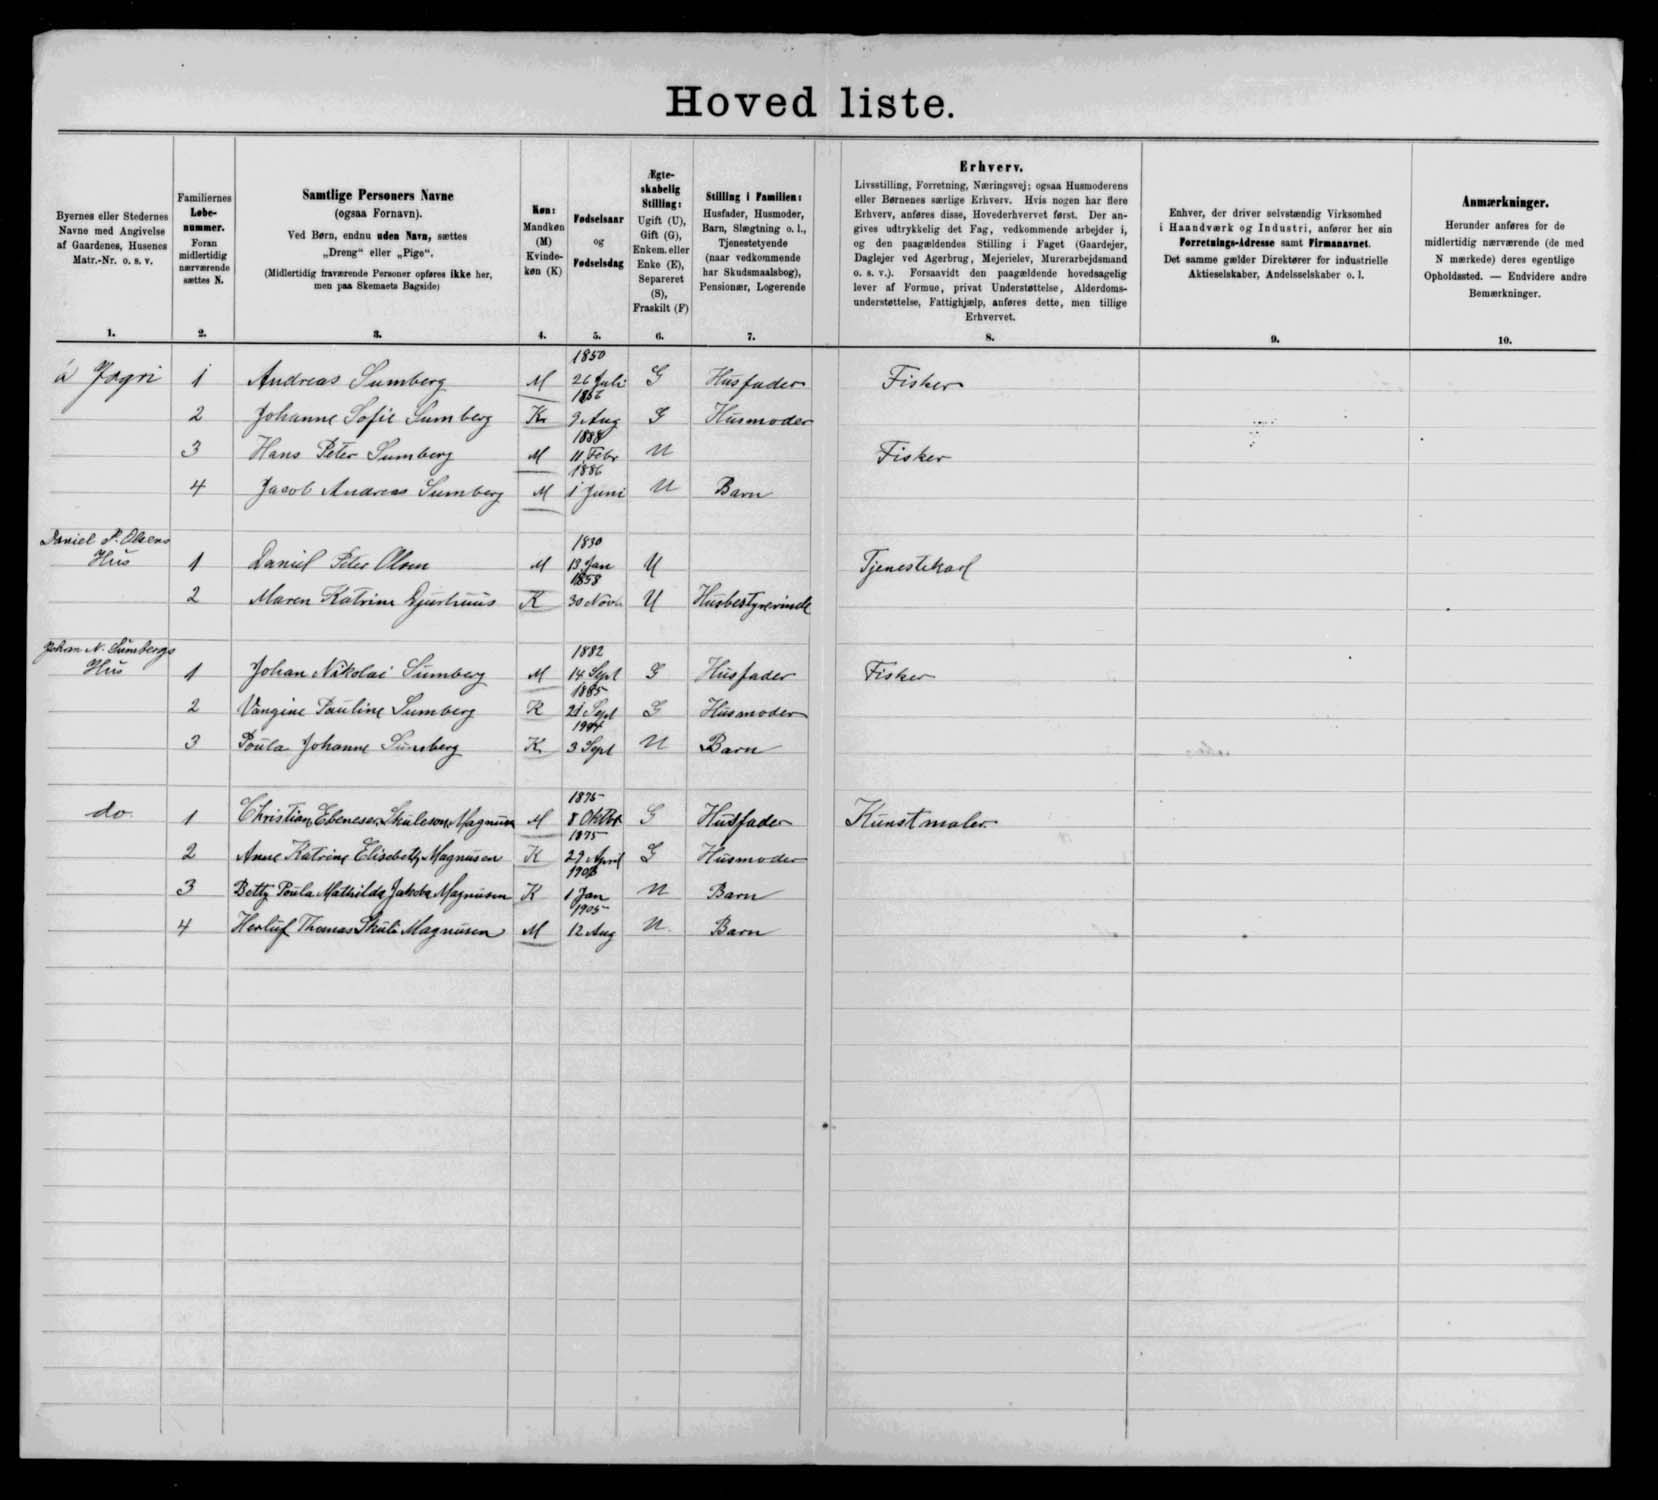 Hoved liste.
Byernes eller Stedernes
Navne med Angivelse
af Gaardenes, Husenes
Matr.-Nr. o. s. v.
1.
Familiernes
Løbe-
nummer.
Foran
midlertidig
nærværende
sættes N.
2.
Samtlige Personers Navne
(ogsaa Fornavn).
Ved Børn, endnu uden Navn, sættes
„Dreng“ eller „Pige“.
(Midlertidig fraværende Personer opføres ikke her,
men paa Skemaets Bagside)
3.
Køn:
Mandkøn
(M)
Kvinde-
køn (K)
4.
Fødselsaar
og
Fødselsdag
5.
Ægte-
skabelig
Stilling:
Ugift (U),
Gift (G),
Enkem. eller
Enke (E),
Separeret
(S),
Fraskilt (F)
6.
Stilling i Familien:
Husfader, Husmoder,
Barn, Slægtning o. l.,
Tjenestetyende
(naar vedkommende
har Skudsmaalsbog),
Pensionær, Logerende
7.
Erhverv.
Livsstilling, Forretning, Næringsvej; ogsaa Husmoderens
eller Børnenes særlige Erhverv. Hvis nogen har flere
Erhverv, anføres disse, Hovederhvervet først. Der an-
gives udtrykkelig det Fag, vedkommende arbejder i,
og den paagældendes Stilling i Faget (Gaardejer,
Daglejer ved Agerbrug, Mejerielev, Murerarbejdsmand
o. s. v.). Forsaavidt den paagældende hovedsagelig
lever af Formue, privat Understøttelse, Alderdoms-
understøttelse, Fattighjælp, anføres dette, men tillige
Erhvervet.
8.
Enhver, der driver selvstændig Virksomhed
i Haandværk og Industri, anfører her sin
Forretnings-Adresse samt Firmanavnet.
Det samme gælder Direktører for industrielle
Aktieselskaber, Andelsselskaber o. l.
9.
Anmærkninger.
Herunder anføres for de
midlertidig nærværende (de med
N mærkede) deres egentlige
Opholdssted. — Endvidere andre
Bemærkninger.
10.
1850
á 1 Andreas Sumberg M 26 Juli G Husfader Fisker
2 Johanne Sofie Sumberg K 9 Aug G Husmoder
1888
3 Hans Peter Sumberg M 11 Febr U Fisker
1886
4 Jacob Andreas Sumberg M 1 Juni U Barn
Daniel P. Olsens 1830
Hus 1 Daniel Peter Olsen M 13 Jan U Tjenestekarl
1858
2 Maren Katrine Djurhuus K 30 Novr U Husbestyrerinde
Johan N. Sumbergs 1882
Hus 1 Johan Nikolai Sumberg M 14 Sept G Husfader Fisker
1885
2 Vangine Pauline Sumberg K 21 Sept G Husmoder
3 Poula Johanne Sumberg K 3 Sept U Barn
1875
do. 1 Christian Ebeneser Skuleson Magnusen M 8 Oktbr G Husfader Kunstmaler
1875
2 Anne Katrine Elisebeth Magnusen K 29 April G Husmoder
3 Betty Poula Mathilda Jakoba Magnusen K 1 Jan U Barn
1905
4 Herluf Thomas Skuli Magnusen M 12 Aug U Barn